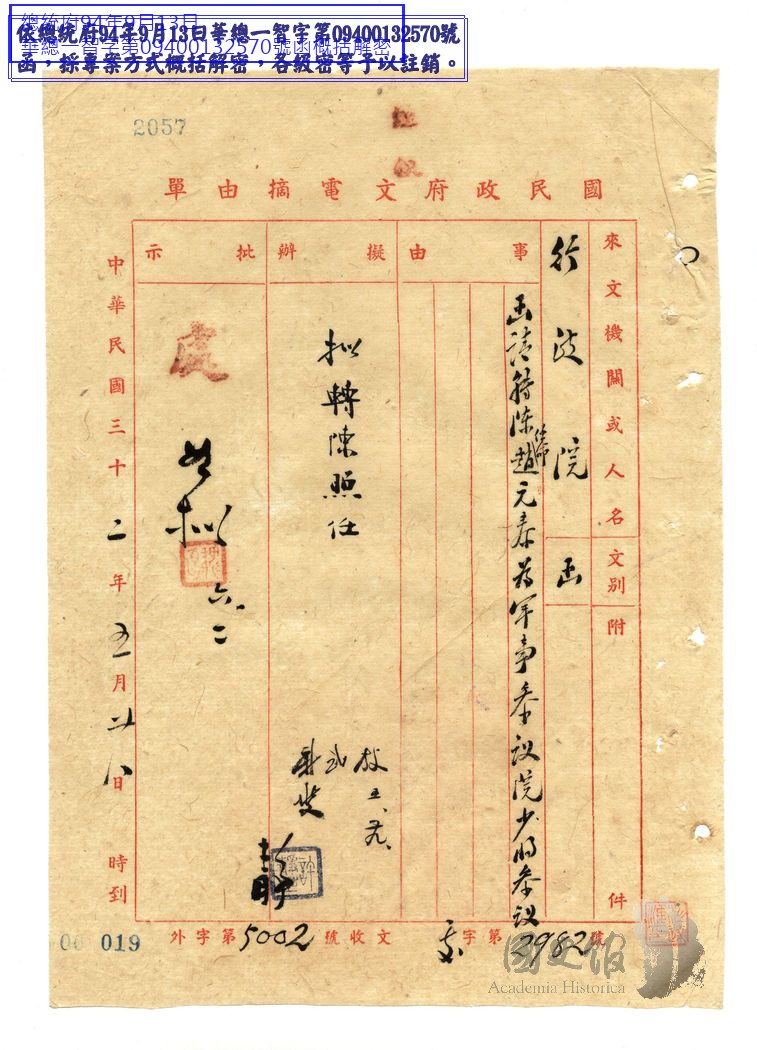 總統府94年9月13日
華總一智字第09400132570號函概括解密
依總統府94年9月13日華總一智字第09400132570號
函，採專案方式概括解密，各級密等予以註銷。
2057
國民政府文電摘由單
來文機關或人名
行政院
文別
函
附件
事由
函請轉陳任命趙元泰為軍事參議院少將參議
擬辦
擬轉陳照任
五、
批示
如擬
六、二
中華民國三十二年五月廿八日時到
字第2982號
收文外字第5002號
00 019
國史館
Academia Historica